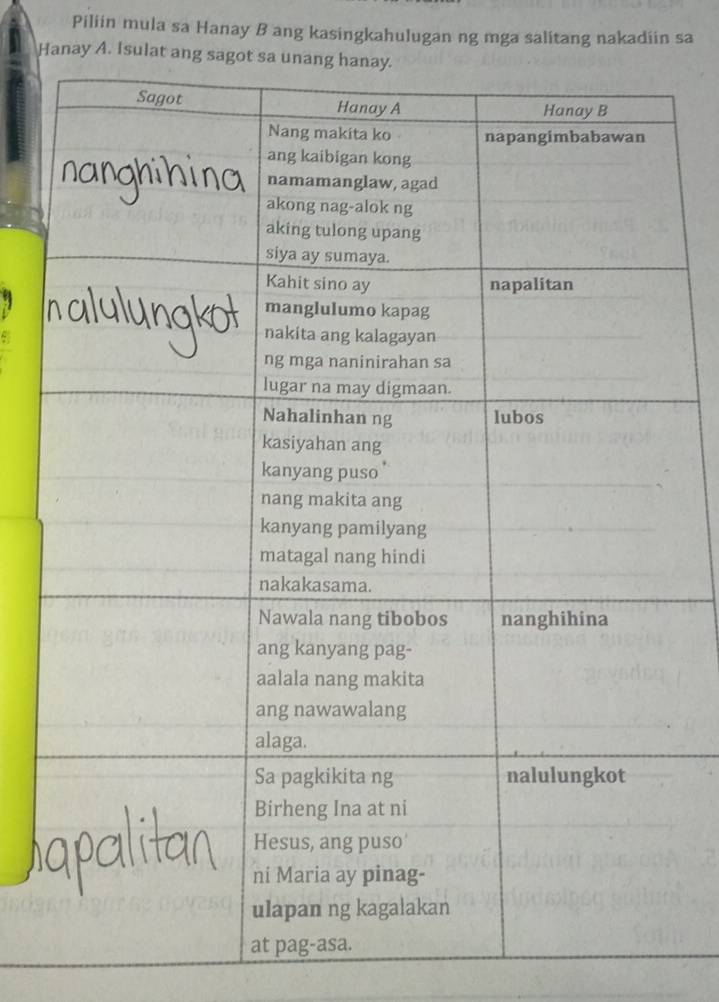 Piliin mula sa Hanay B ang kasingkahulugan ng mga salitang nakadiin sa
Hanay A. Isulat ang sagot sa unang hanay.
Sagot Hanay A Hanay B
Nang makita ko napangimbabawan
ang kaibigan kong
nanghihina namamanglaw, agad
akong nag-alok ng
aking tulong upang
siya ay sumaya.
Kahit sino ay napalitan
nalulungkot manglulumo kapag
nakita ang kalagayan
ng mga naninirahan sa
lugar na may digmaan.
Nahalinhan ng lubos
kasiyahan ang
kanyang puso
nang makita ang
kanyang pamilyang
matagal nang hindi
nakakasama.
Nawala nang tibobos nanghihina
ang kanyang pag-
aalala nang makita
ang nawawalang
alaga.
Sa pagkikita ng nalulungkot
Birheng Ina at ni
napalitan Hesus, ang puso
ni Maria ay pinag-
ulapan ng kagalakan
at pag-asa.